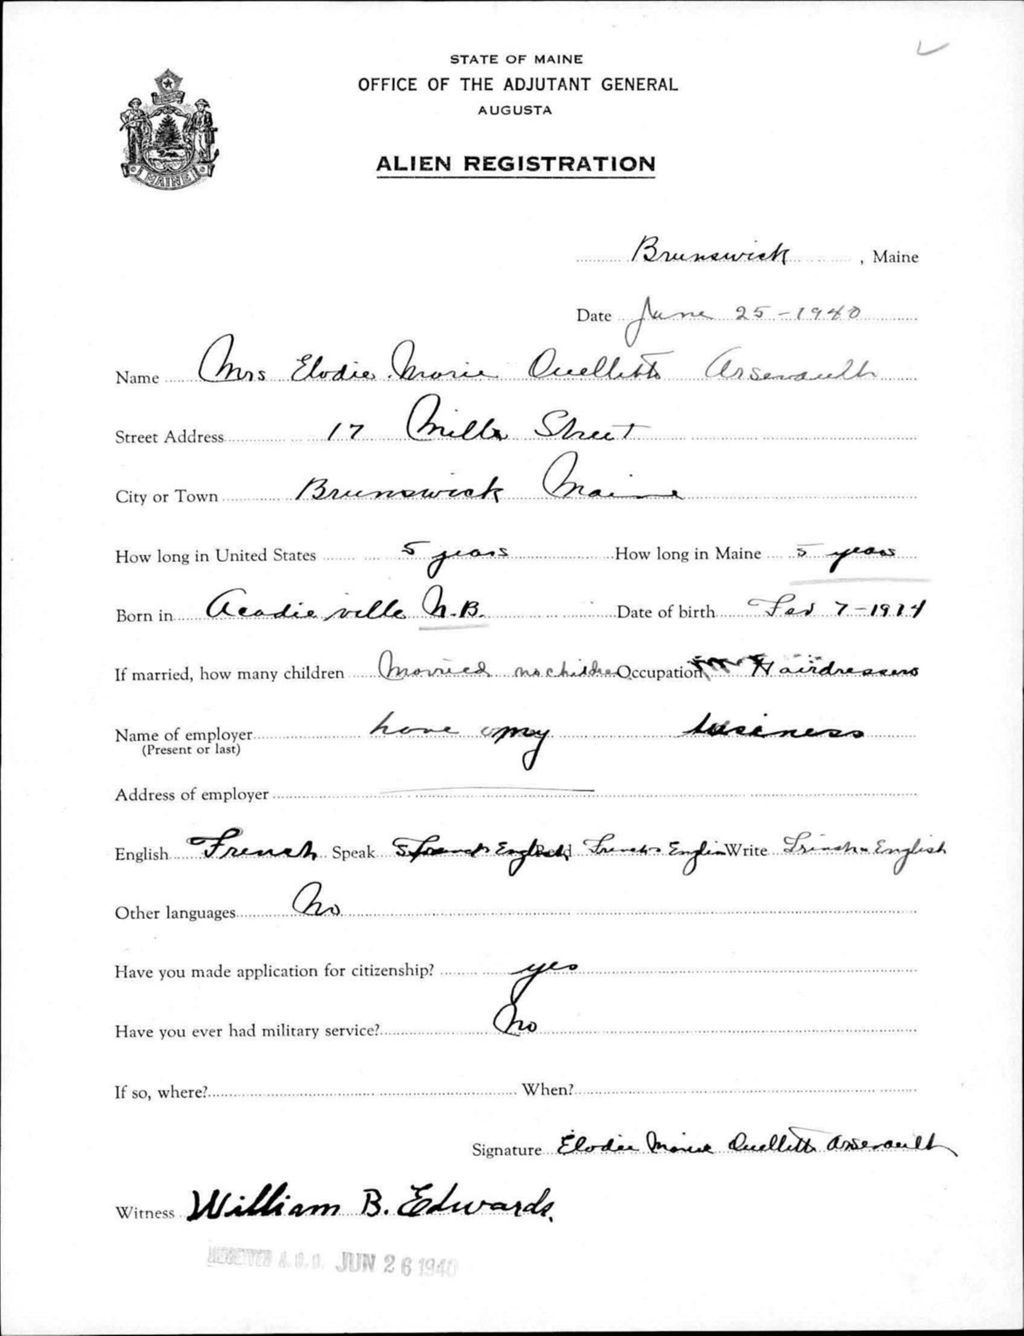 STATE OF MAINE
OFFICE OF THE ADJUTANT GENERAL
AUGUSTA
ALIEN REGISTRATION
MAINE
Brunswick, Maine
Date June 25-1940
Name Mrs Elodie Marie Ouellette Arsenault
Street Address 17 Mill Street
City or Town Brunswick Maine
How long in United States 5 years How long in Maine 5 years
Born in Acadieville N.B. Date of birth 7-1914
If married, how many children Married no children Occupation Hairdressers
Name of employer have my business
(Present or last)
Address of employer
English French Speak French English Read French English Write French English
Other languages No
Have you made application for citizenship? yes
Have you ever had military service? No
If so, where? When?
Signature Elodie Marie Ouellette Arsenault
Witness William B. Edwards.
RECEIVED A.G.O. JUN 26 1940